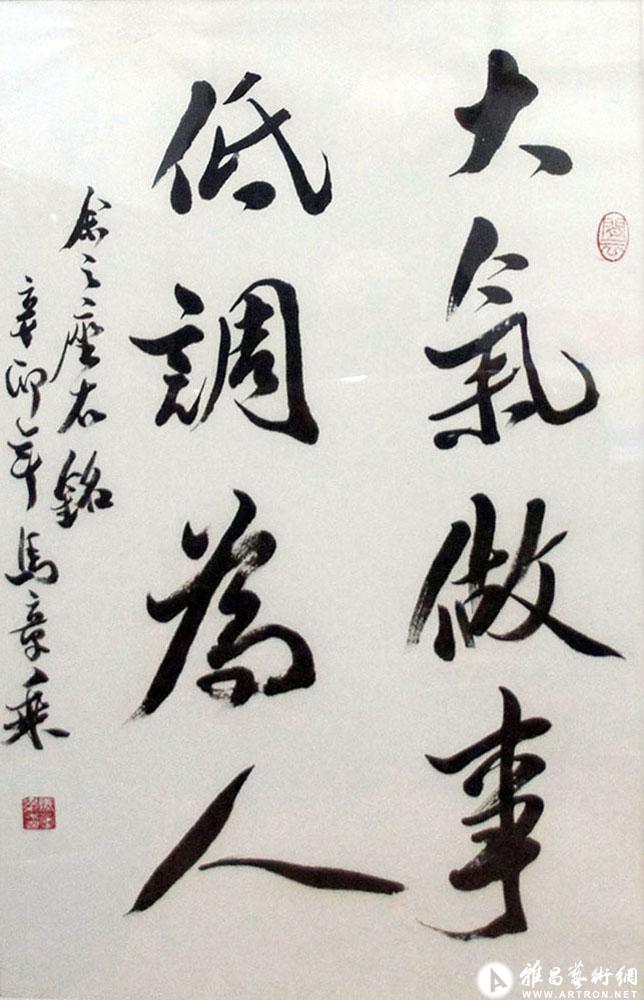 大氣做事
低調為人
余之座右銘
辛卯年馬章乘
雅昌藝術網
WWW.ARTRON.NET